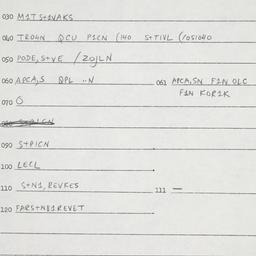 030 M1TS+1VAKS
040 TRO4N QCU P1CN (140 S+TIVL (1051040
050 PODE,S+VE /ZOJLN
060 APCA,S QPL ..N 061 APCA,SN F1N OLC
F1N KOR1K
070 O
090 S+PICN
100 LECL
110 S+N1, REVKES 111 —
120 FARS+N81REVET